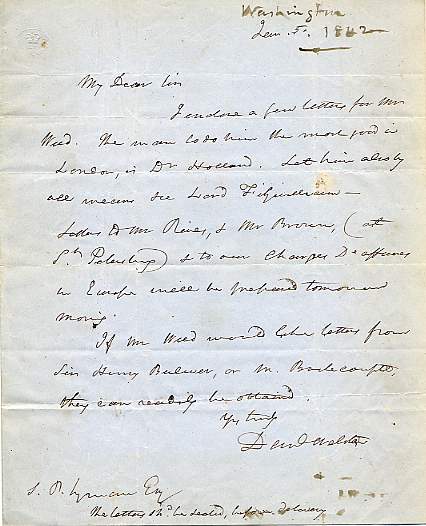 Washington
Jan. 5. 1842
My Dear Sir
I enclose a few letters for Mr
Weed. The man to do him the most good in
London, is Dr Holland. Let him also by
all means see Lord Fitzwilliam -
Letters to Mr Rives, & Mr Brown, (at
St. Petersburg) & to our Charges D'affaires
in Europe will be prepared tomorrow
morng.
If Mr Weed would like letters from
Sir Henry Bulwer, or M.
they can readily be obtained.
Yrs truly
Danl Webster
S. R. Lyman Esq
The letters shd be sealed, before delivery